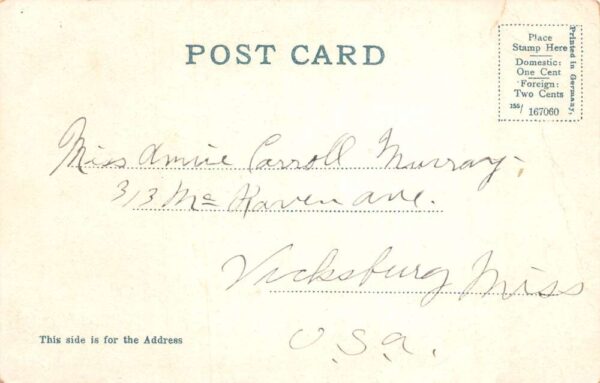 POST CARD
Place
Stamp Here
Domestic:
One Cent
Foreign:
Two Cents
155/ 167060
Printed in Germany.
Miss Annie Carroll Murray.
313 Mc Raven ave.
Vicksburg Miss
U.S.A.
This side is for the Address